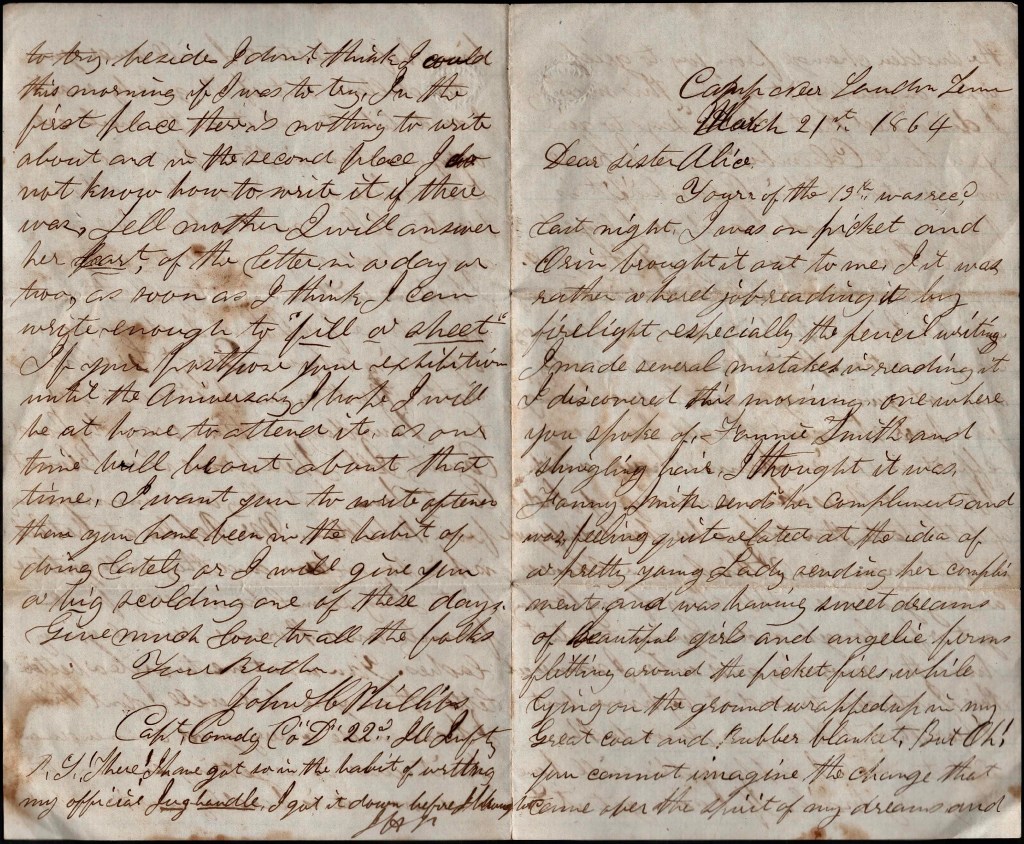 Camp near Loudon Tenn
March 21st 1864
Dear sister Alice.
Yours of the 19th was recd
last night, I was on picket and
Orin brought it out to me, I it was
rather a hard job reading it by
firelight especially the pencil writing.
I made several mistakes in reading it
I discovered this morning, one where
you spoke of Fannie Smith and
shingling hair, I thought it was
Fanny Smith sends her compliments and
was feeling quite elated at the idea of
a pretty young Lady sending her compli
ments and was having sweet dreams
of Beautiful girls and angelic forms
flitting around the picket fires, while
lying on the ground wrapped up in my
Great coat and Rubber blanket, But Oh!
you cannot imagine the change that
came over the spirit of my dreams and
to try, beside I don't think I could
this morning if I was to try, In the
first place there is nothing to write
about and in the second place I do
not know how to write it if there
was, Tell mother I will answer
her part, of the letter in a day or
two, as soon as I think I can
write enough to "fill a sheet"
If you postpone your exhibition
until the Aniversary I hope I will
be at home to attend it, as our
time will be out about that
time, I want you to write oftener
than you have been in the habit of
doing lately or I will give you
a big scolding one of these days.
Give much love to all the folks
Your Brother
John H Phillips
Capt Comdg Co "D" 22d Ill Infty
P.S. There! I have got so in the habit of writing
my official Jughandle, I got it down before I thought